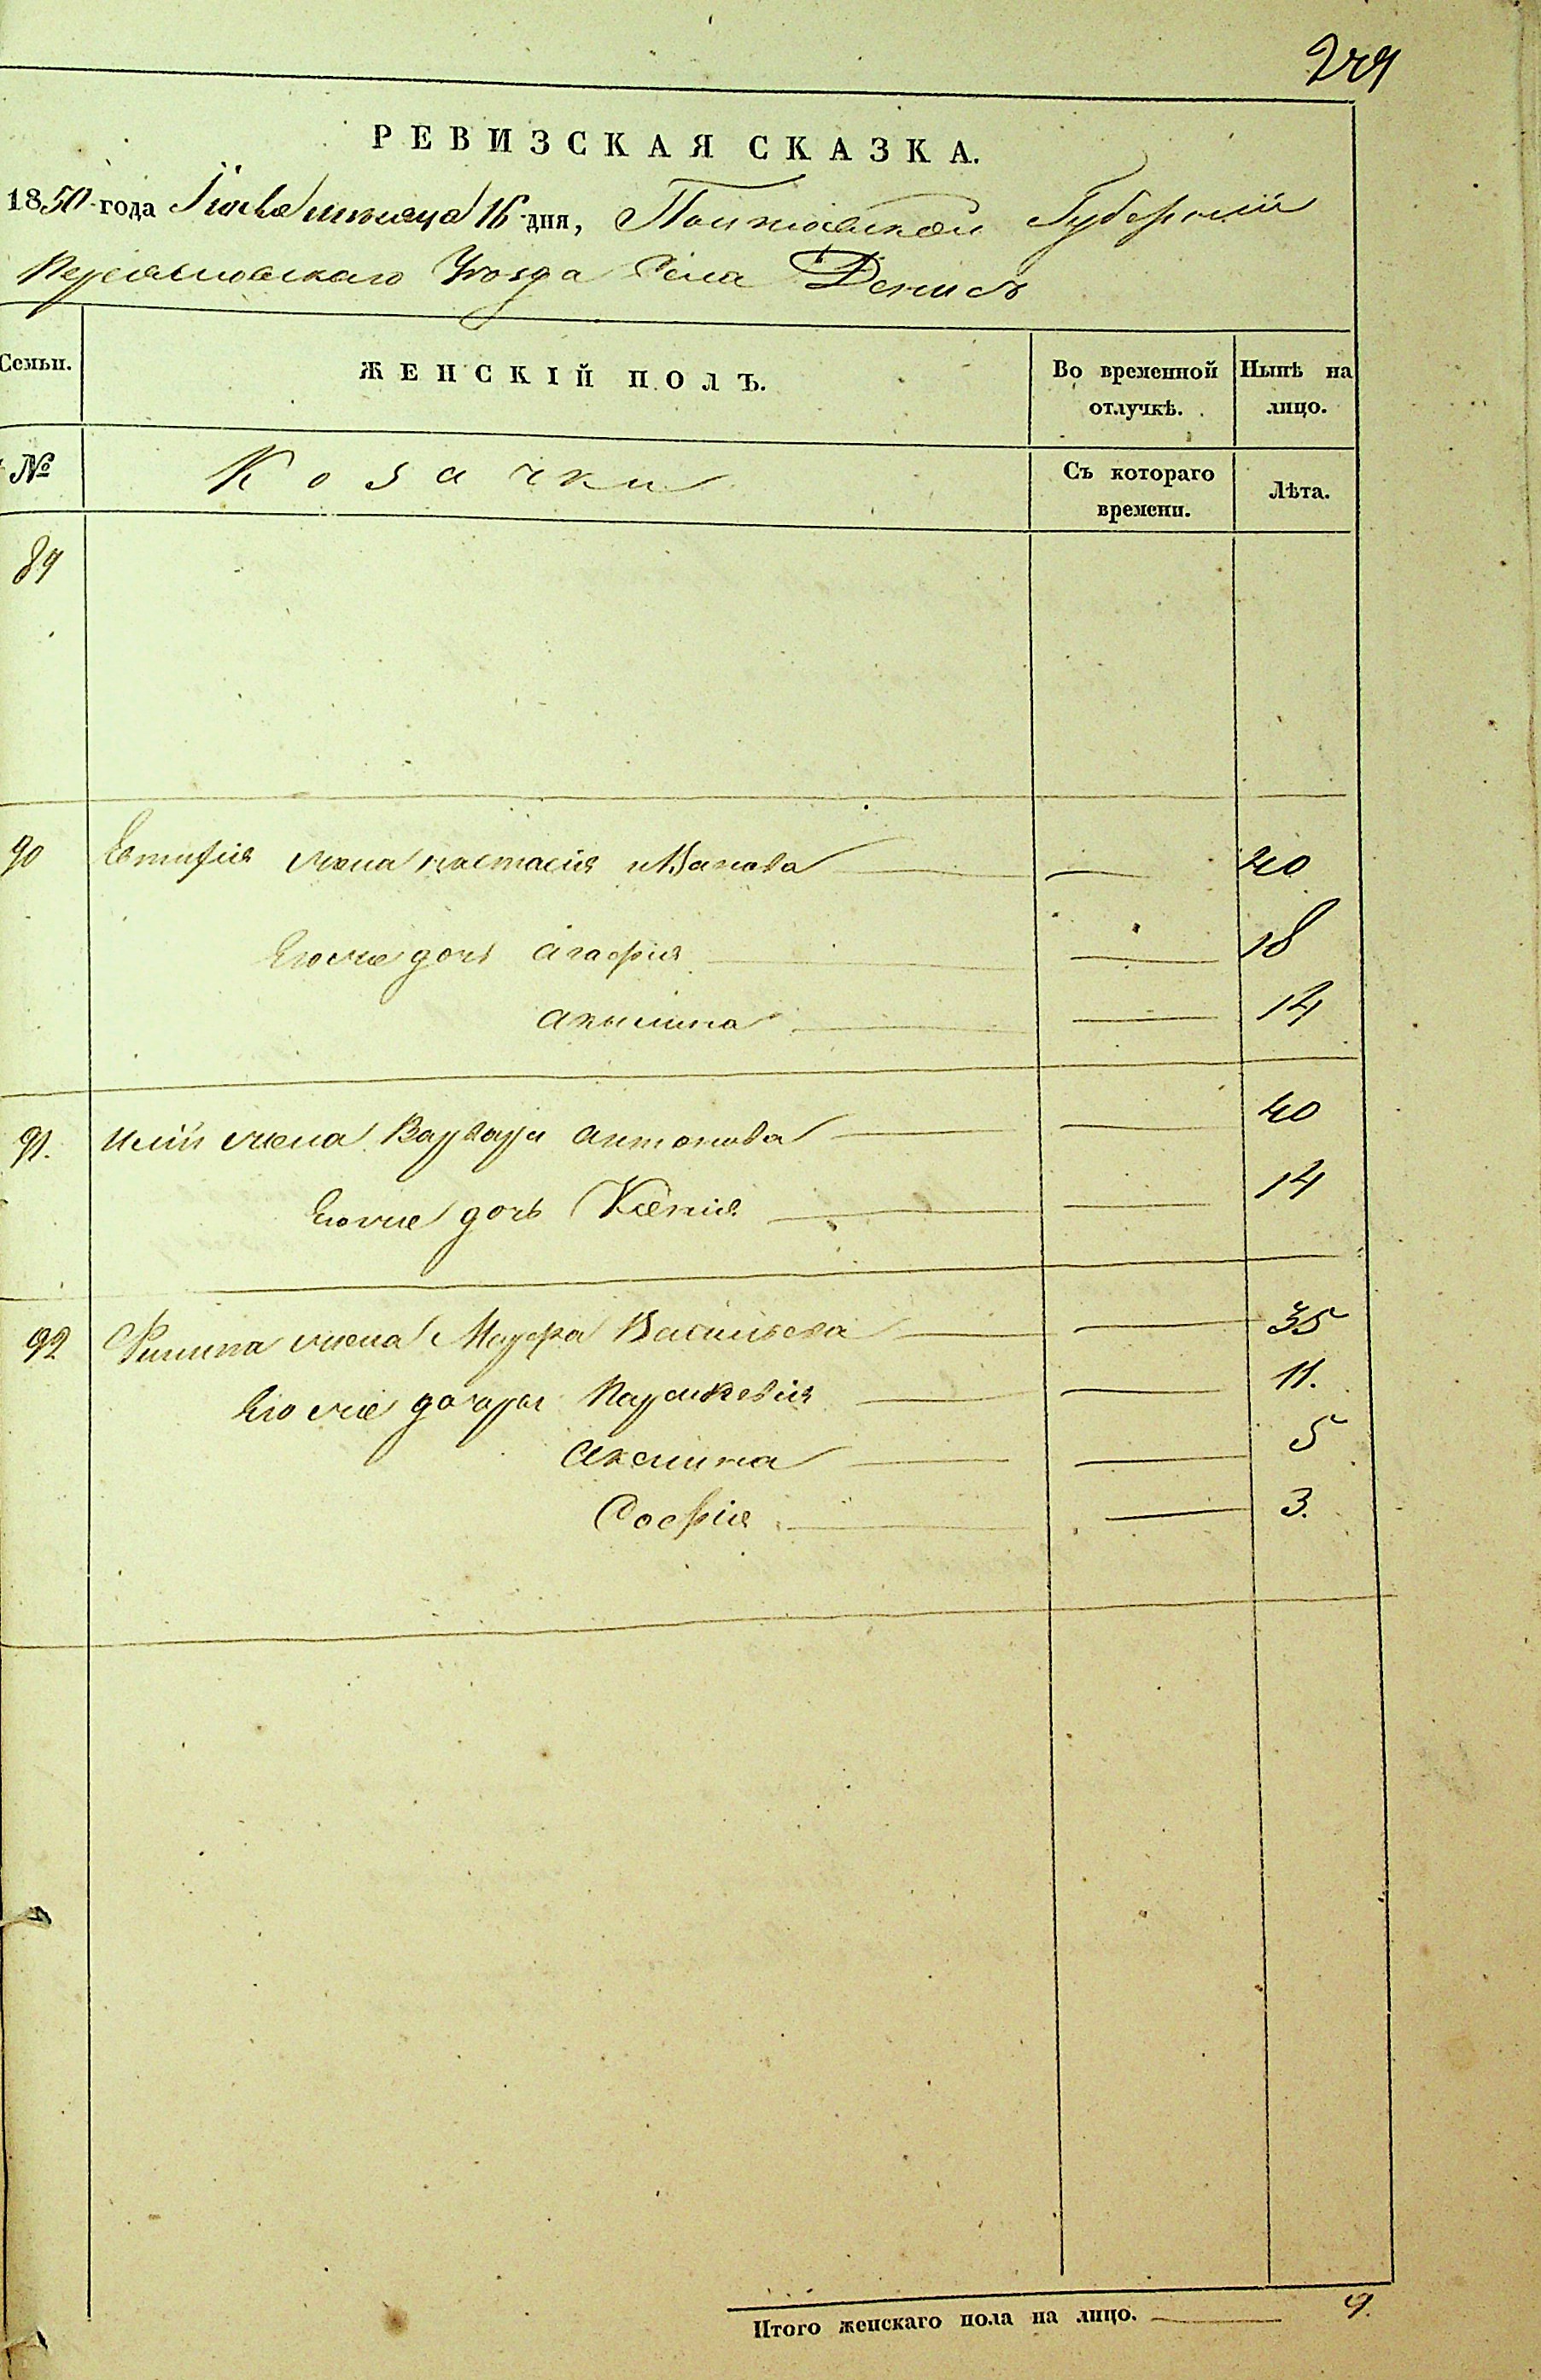 249
РЕВИЗСКАЯ СКАЗКА.
1850 года Іюля месяца 16 дня, Полтавской Губерніи
Переяславскаго Уезда Села Денисъ
Семьи. ЖЕНСКІЙ ПОЛЪ. Во временной отлучкѣ. Нынѣ на лицо.
№ Козачки Съ котораго времени. Лѣта.
89
90 Евтифія жена настасія иванова 40
Его же дочь агафия 18
акылина 14
91. иліи жена Варвара антонова 40
Его же дочь Ксенія 14
92 Филипа жена Мауфра Васильева 35
Его же дочери Параскевия 11.
Акилина 5
Софія 3.
Итого женскаго пола на лицо. 9.